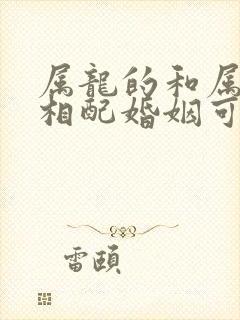 属龍的和属
相配婚姻可
雷頤